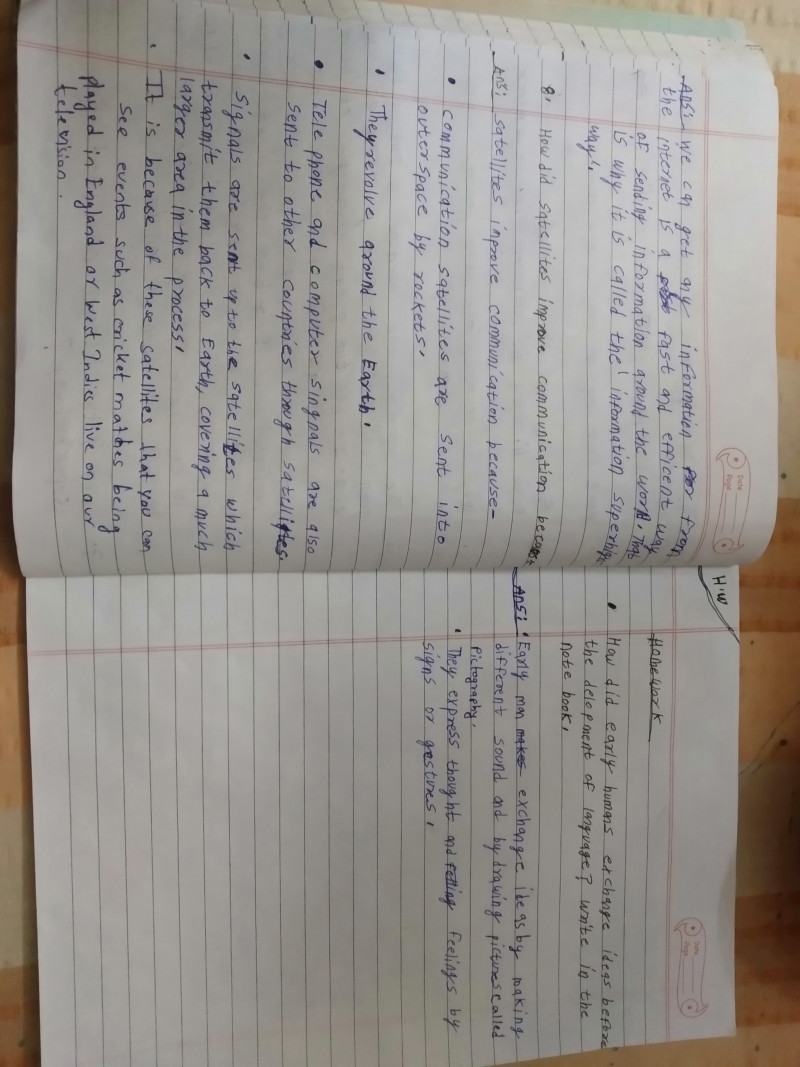 Date
Page
Ans:- We can get any information from
the internet is a fast and efficent way
of sending information around the world. That
is why it is called the 'information superhigh
way'.
8. How did satellites improve communication because
Ans: satellites improve communication because-
• communication satellites are sent into
outerspace by rockets.
• They revolve around the Earth.
• Tele phone and computer singnals are also
sent to other countries through satellites.
• Signals are sent up to the satellites which
transmit them back to Earth, covering a much
larger area in the process.
• It is because of these satellites that you can
see events such as cricket matches being
played in England or West Indies live on our
television.
H.W
Date
Page
Homework
• How did early humans exchange ideas before
the delopment of language? Write in the
note book.
Ans: • Early man makes exchange ideas by making
different sound and by drawing pictures called
pictography.
• They express thought and felling feelings by
signs or gestures.